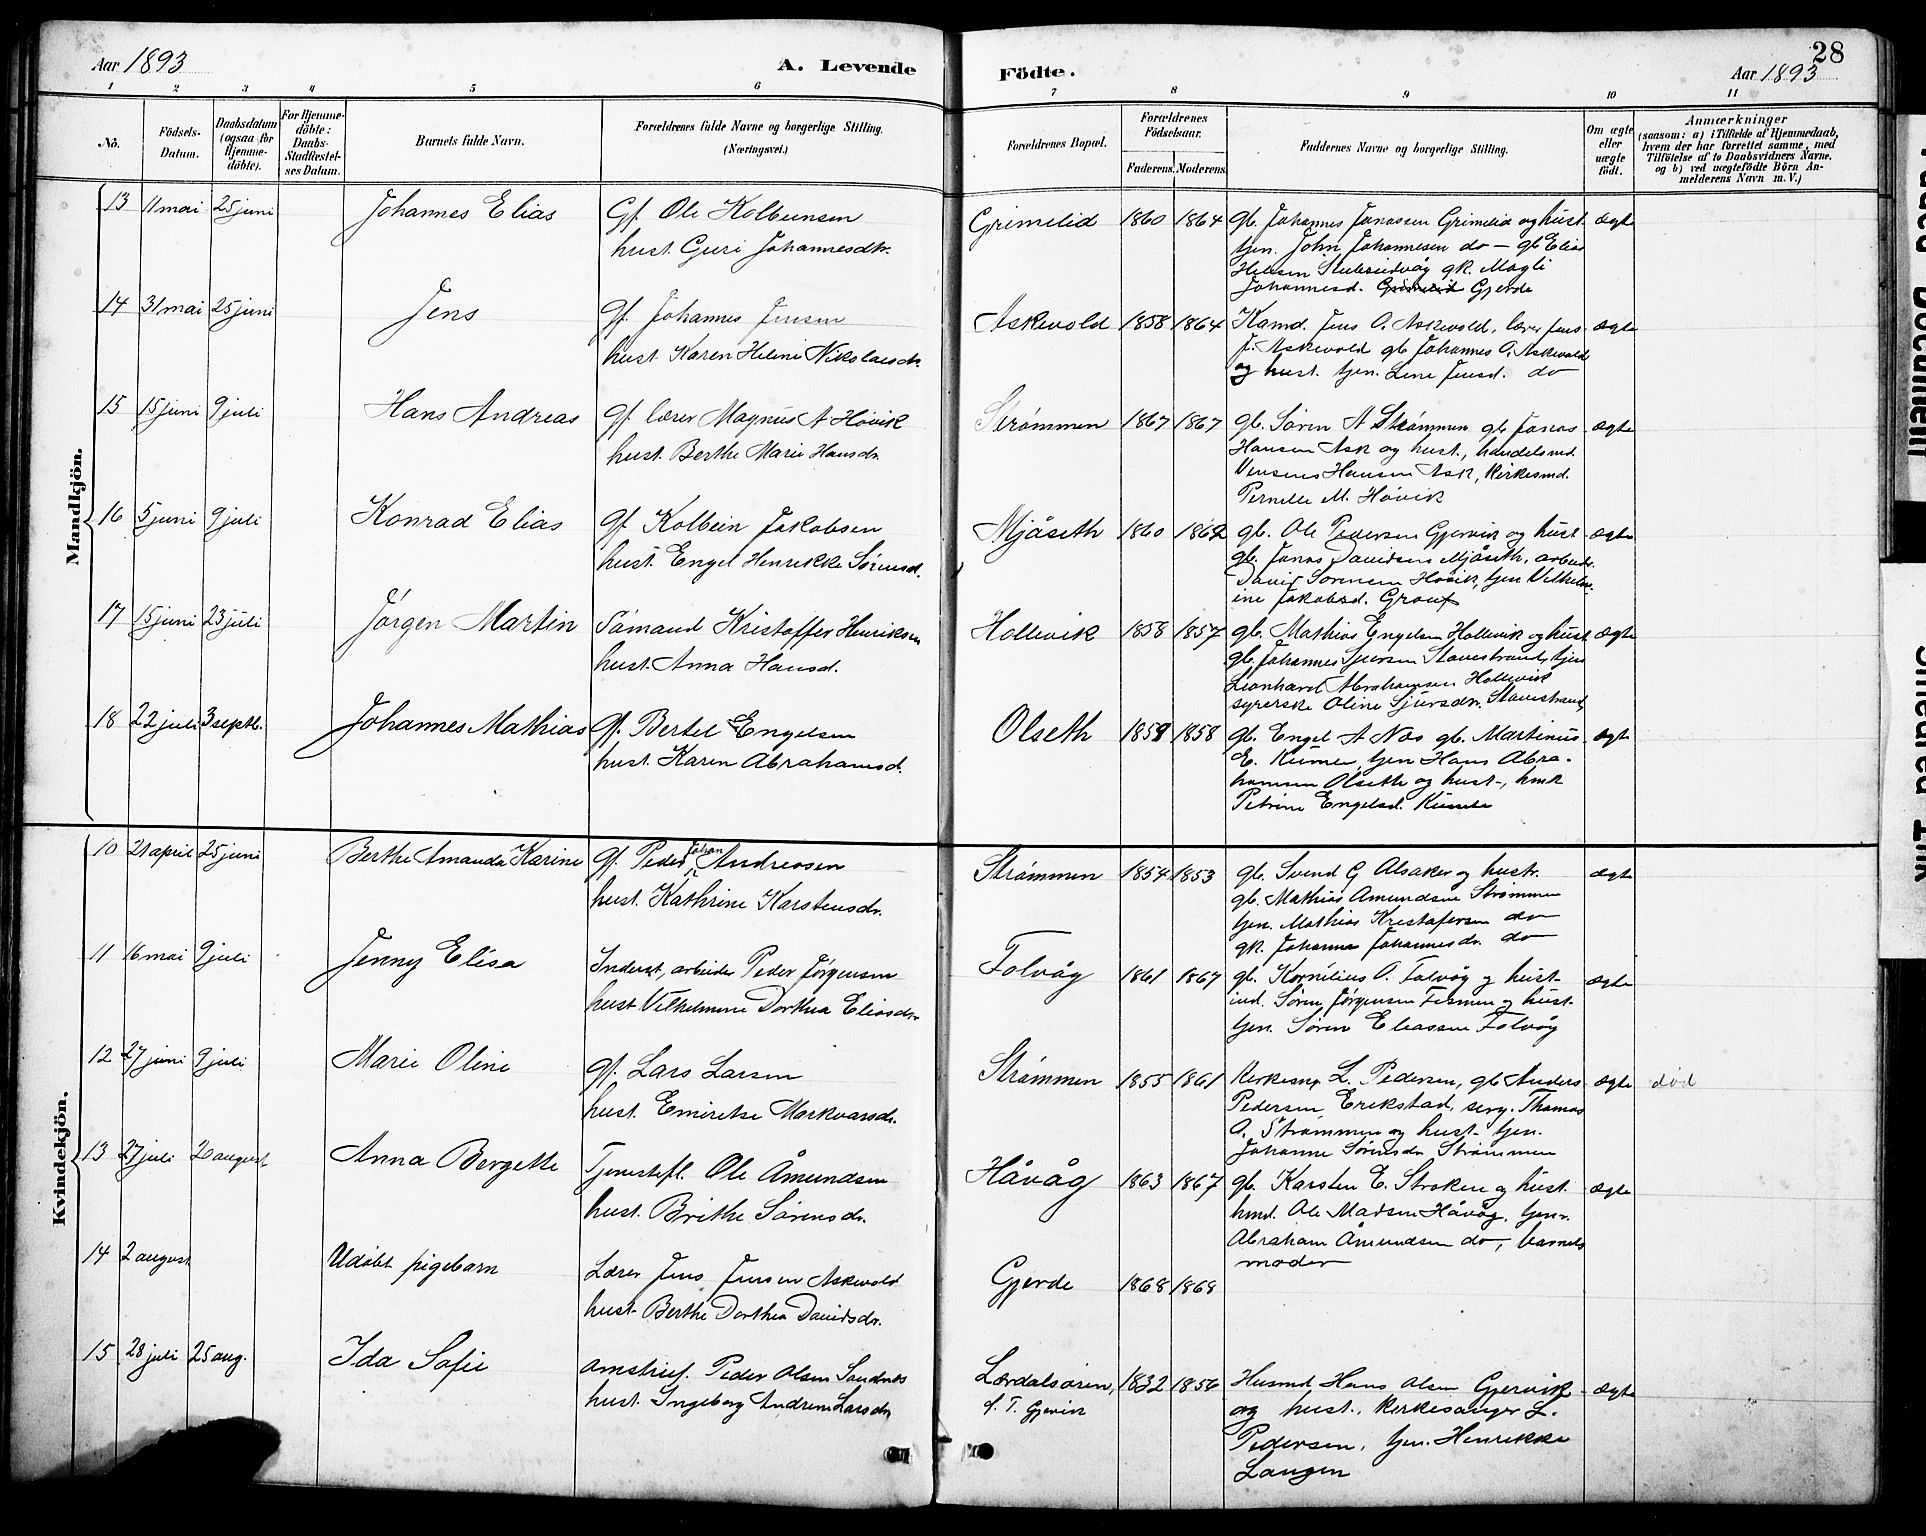 28
Aar 1893
A. Levende
Födte.
Aar 1893
1 2 3 4 5 6 7 8 9 10 11
No.
Födsels-
Datum.
Daabsdatum
(ogsaa for
Hjemme-
döbte).
For Hjemme-
döbte:
Daabs-
Stadfæstel-
ses Datum.
Barnets fulde Navn.
Forældrenes fulde Navne og borgerlige Stilling.
(Næringsvei.)
Forældrenes Bopæl.
Forældrenes
Födselsaar.
Faderens. Moderens.
Faddernes Navne og borgerlige Stilling.
Om ægte
eller
uægte
födt.
Anmærkninger
(saasom: a) i Tilfælde af Hjemmedaab,
hvem der har forrettet samme, med
Tilföielse af to Daabsvidners Navne,
og b) ved uægtefödte Börn An-
melderens Navn m. V.)
Mandkjön.
13 11 mai 25 juni Johannes Elias Gf. Ole Kolbeinsen
hust. Guri Johannesdtr.
Grimelid 1860 1864 gb. Johannes Jonassen Grimelid og hust.
tjen. John Johannesen do – gb Elias
Hilsen Stubseidvåg gk. Magli
Johannesd. Grimelid Gjerde
ægte
14 31 mai 25 juni Jens gf. Johannes Jensen
hust. Karen Heline Nikolaisdtr.
Askevold 1858 1864 Kamd. Jens O. Askevold, lærer Jens
J. Askevold gb Johannes O. Askevold
og hust. tjen. Lene Jensd. do
ægte
15 15 juni 9 juli Hans Andreas gf. lærer Magnus A Høvik
hust. Berthe Marie Hansdr.
Strømmen 1867 1867 gb. Søren A Strømmen gb Jonas
Hansen Ask og hust, handelsmd.
Hansen Ask, Kirkesmd.
Pernille M. Høvik
ægte
16 5 juni 9 juli Konrad Elias gf Kolbein Jakobsen
hust. Engel Henrikke Sørensd.
Mjåseth 1860 1862 gb. Ole Pedersen Gjervik og hust
gb. Jonas Davidsen Mjåseth, arbeidr.
David Sørensen Høvik, tjen Vilhelm-
ine Jakobsd. Grouf
ægte
17 15 juni 23 juli Jørgen Martin Sømand Kristoffer Henriksen
hust. Anna Hansd.
Hollevik 1858 1857 gb. Mathias Engelsen Hollevik og hust
gb. Johannes Sjursen Stavestrand, tjen
Leonhard Abrahamsen Hollevik
syerske Oline Sjursdr. Stavestrand,
ægte
18 22 juli 3 septb. Johannes Mathias gf. Bertel Engelsen
hust. Karen Abrahamsd.
Olseth 1859 1858 gb. Engel A Nos gb. Martinus
E. tjen Hans Abra-
hamsen Olseth og hust-, hmk
Petrine Engelsd.
ægte
Kvindekjön.
10 21 april 25 juni Berthe Amanda Karine gf. Peder Johan Andreasen
hust. Kathrine Karstensdr.
Strømmen 1854 1853 gb. Svend G Alsaker og hustr.
gb. Mathias Amundsen Strømmen
tjen. Mathias Kristofersen do
gk. Johanna Johannesdr. do
ægte
11 16 mai 9 juli Jenny Elisa Inderst, arbeider Peder Jørgensen
hust Vilhelmine Dorthea Eliasdr.
Folvåg 1861 1867 gb. Kornelius O. Folvåg og hust-
ind. Søren Jørgensen og hust.
tjen. Søren Eliassen Folvåg
ægte
12 27 juni 9 juli Marie Oline gf. Lars Larsen
hust. Emiretse Markvarsdr.
Strømmen 1855 1861 Kirkesng. L. Pedersen, gb Anders
Pedersen Erikstad, serg. Thomas
O. Strømmen og hust- tjen.
Johanne Sørensdr Strømmen
ægte død
13 27 juli 20 august Anna Bergette Tjenestefl. Ole Åmundsen
hust. Brithe Sørensdr.
Håvåg 1863 1867 gb. Karsten E. Stroken og hust.
hmd. Ole Madsen Håvåg, tjen.
Abraham Åmundsen do, barnets
moder
ægte
14 2 august Udøbt pigebarn Lærer Jens Jensen Askevold
hust- Berthe Dorthea Davidsdr.
Gjerde 1868 1868
15 28 juli 25 aug. Ida Sofie amstrief. Peder Olsen Sandnes
hust. Ingeborg Andrine Larsdr
Lærdalsøren,
f. T. Gjervik
1832 1856 Husmd. Hans Olsen Gjervik
og hust., Kirkesanger L.
Pedersen, tjen. Henrikke
Langen
ægte